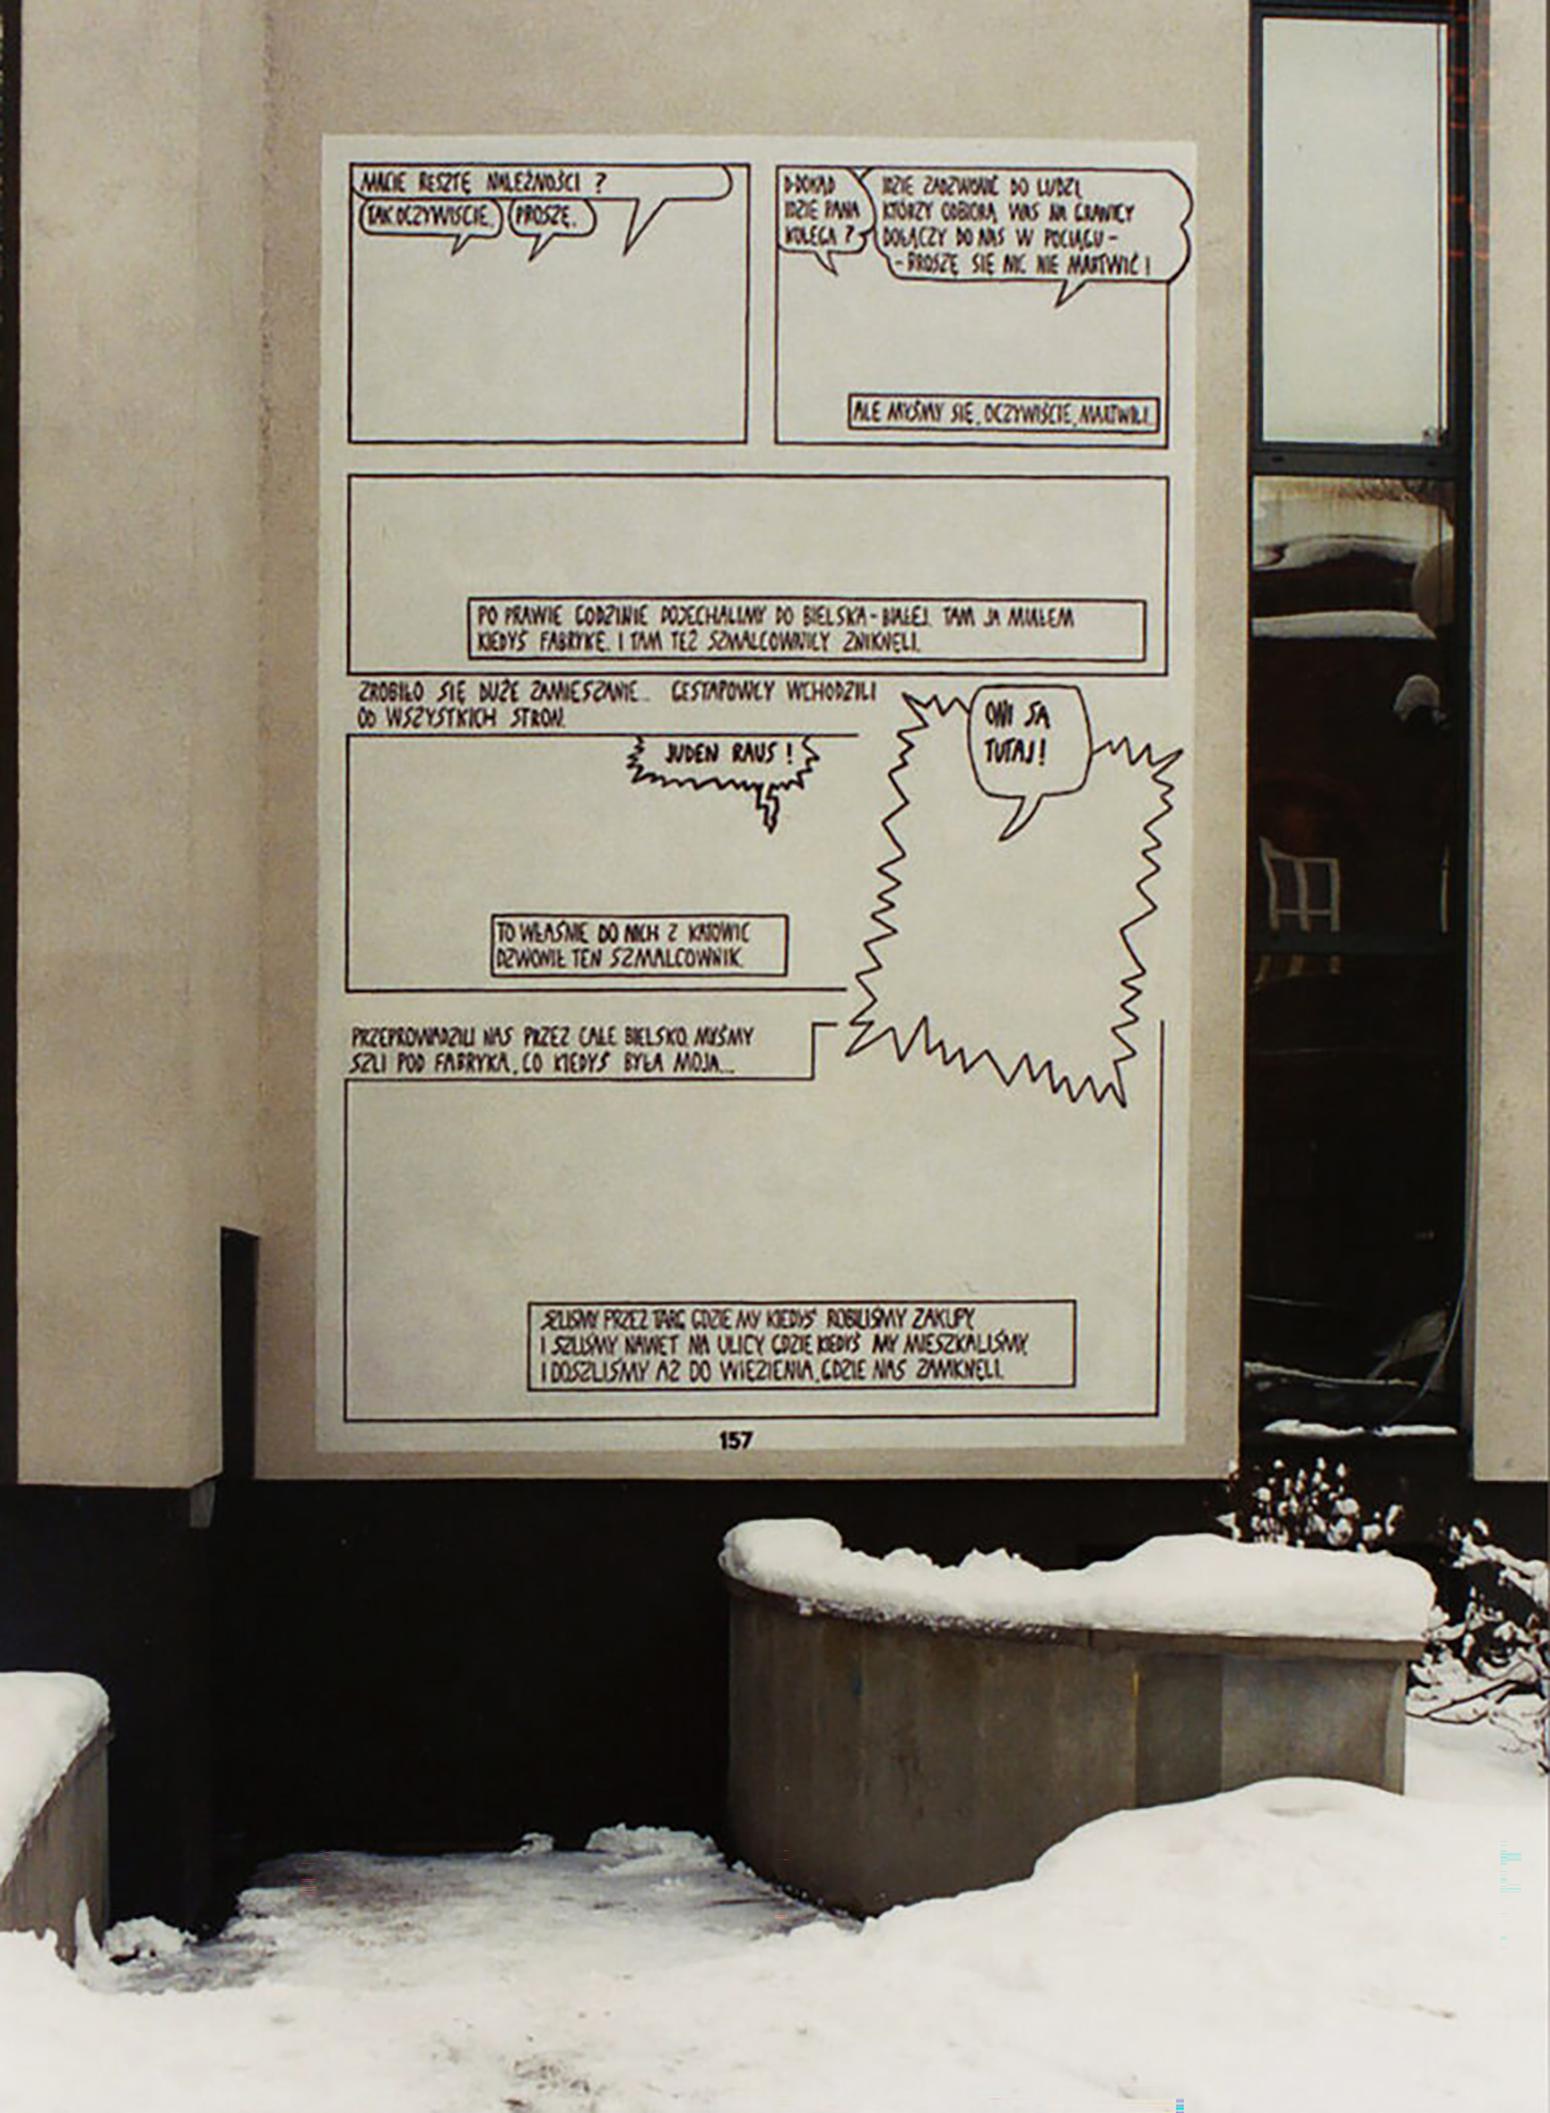 MACIE RESZTĘ NALEŻNOŚCI ?
TAK OCZYWIŚCIE.
PROSZĘ.
D-DOKĄD
IDZIE PANA
KOLEGA ?
IDZIE ZADZWONIĆ DO LUDZI,
KTÓRZY ODBIORĄ WAS NA GRANICY
DOŁĄCZY DO NAS W POCIĄGU -
- PROSZĘ SIĘ NIC NIE MARTWIĆ !
ALE MYŚMY SIĘ, OCZYWIŚCIE, MARTWILI.
PO PRAWIE GODZINIE DOJECHALIMY DO BIELSKA-BIAŁEJ. TAM JA MIAŁEM
KIEDYŚ FABRYKĘ. I TAM TEŻ SZMALCOWNICY ZNIKNĘLI.
ZROBIŁO SIĘ DUŻE ZAMIESZANIE... GESTAPOWCY WCHODZILI
OD WSZYSTKICH STRON.
JUDEN RAUS !
ONI SĄ
TUTAJ !
TO WŁAŚNIE DO NICH Z KATOWIC
DZWONIŁ TEN SZMALCOWNIK.
PRZEPROWADZILI NAS PRZEZ CAŁE BIELSKO. MYŚMY
SZLI POD FABRYKĄ, CO KIEDYŚ BYŁA MOJA...
SZLIŚMY PRZEZ TARG GDZIE MY KIEDYŚ ROBILIŚMY ZAKUPY,
I SZLIŚMY NAWET NA ULICY GDZIE KIEDYŚ MY MIESZKALIŚMY,
I DOSZLIŚMY AŻ DO WIĘZIENIA, GDZIE NAS ZAMKNĘLI.
157